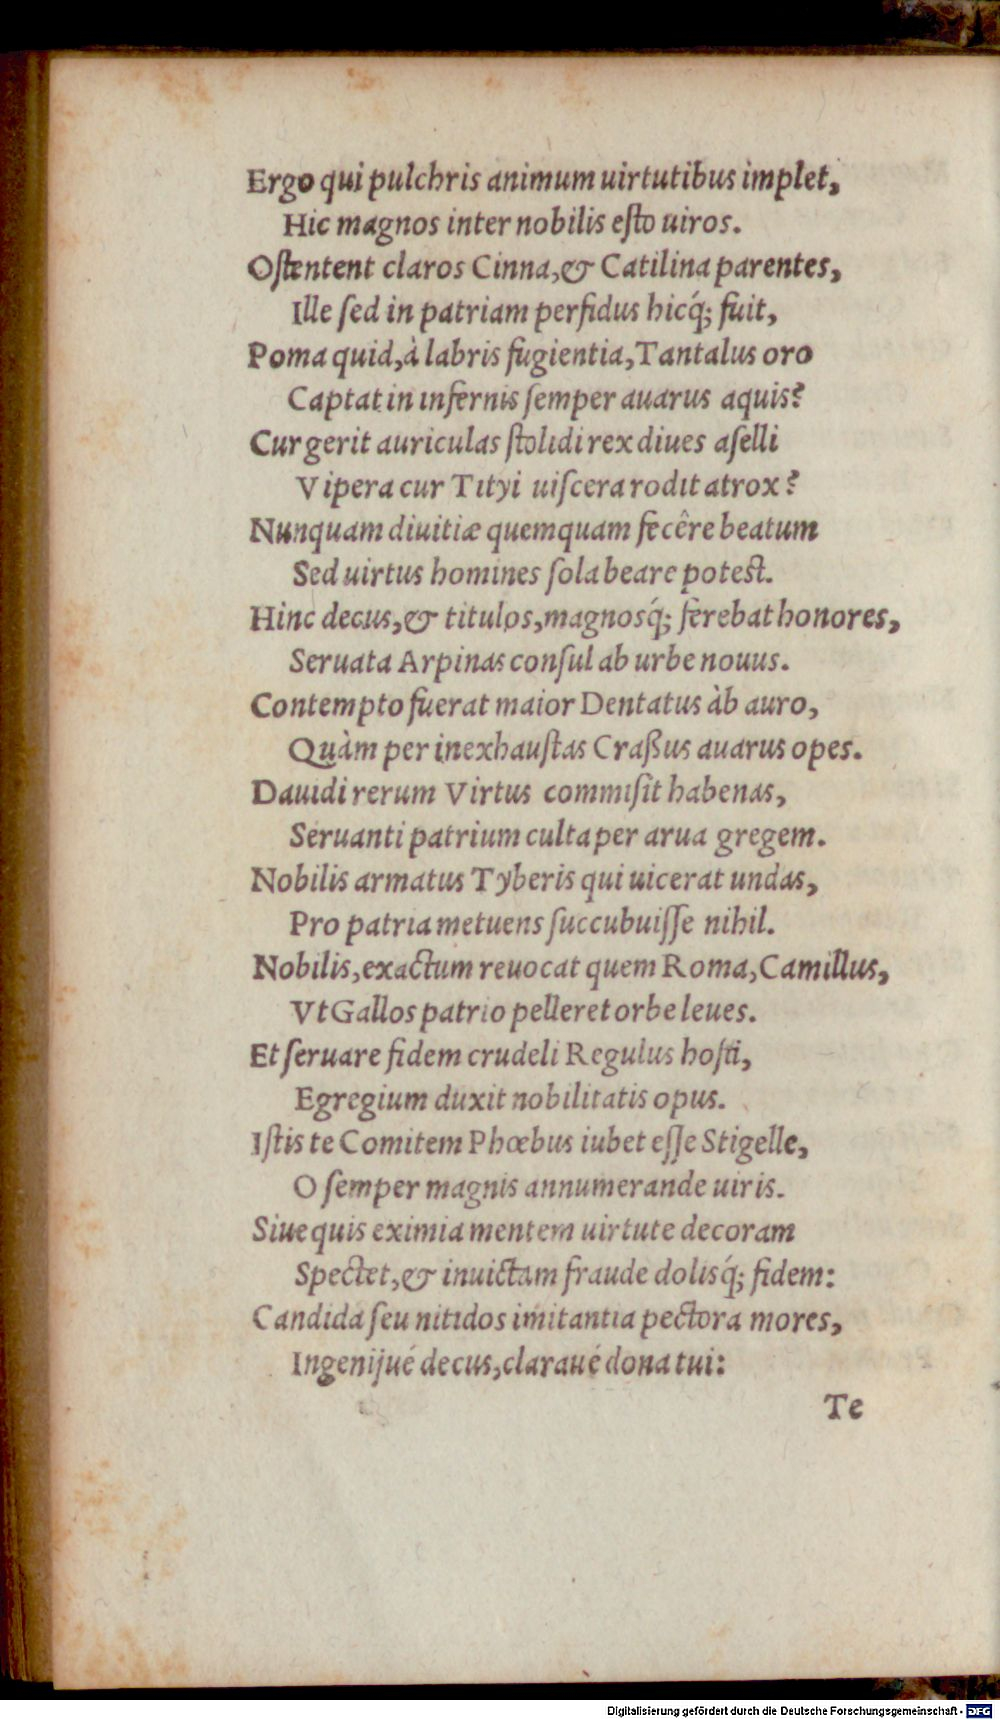 Ergo qui pulchris animum uirtutibus implet,
Hic magnos inter nobilis eſto uiros.
Oſtentent claros Cinna, & Catilina parentes,
Ille ſed in patriam perfidus hicq́; fuit,
Poma quid, à labris fugientia, Tantalus oro
Captat in infernis ſemper auarus aquis?
Cur gerit auriculas ſtolidi rex diues aſelli
Vipera cur Tityi uiſcera rodit atrox?
Nunquam diuitiæ quemquam fecêre beatum
Sed uirtus homines ſola beare potest.
Hinc decus, & titulos, magnosq́; ferebat honores,
Seruata Arpinas conſul ab urbe nouus.
Contempto fuerat maior Dentatus àb auro,
Quàm per inexhauſtas Craßus auarus opes.
Dauidi rerum Virtus commiſit habenas,
Seruanti patrium culta per arua gregem.
Nobilis armatus Tyberis qui uicerat undas,
Pro patria metuens ſuccubuiſſe nihil.
Nobilis, exactum reuocat quem Roma, Camillus,
Vt Gallos patrio pelleret orbe leues.
Et ſeruare fidem crudeli Regulus hoſti,
Egregium duxit nobilitatis opus.
Iſtis te Comitem Phœbus iubet eſſe Stigelle,
O ſemper magnis annumerande uiris.
Siue quis eximia mentem uirtute decoram
Spectet, & inuictam fraude dolisq́; fidem:
Candida ſeu nitidos imitantia pectora mores,
Ingenijué decus, claraué dona tui:
Te
Digitalisierung gefördert durch die Deutsche Forschungsgemeinschaft - DFG